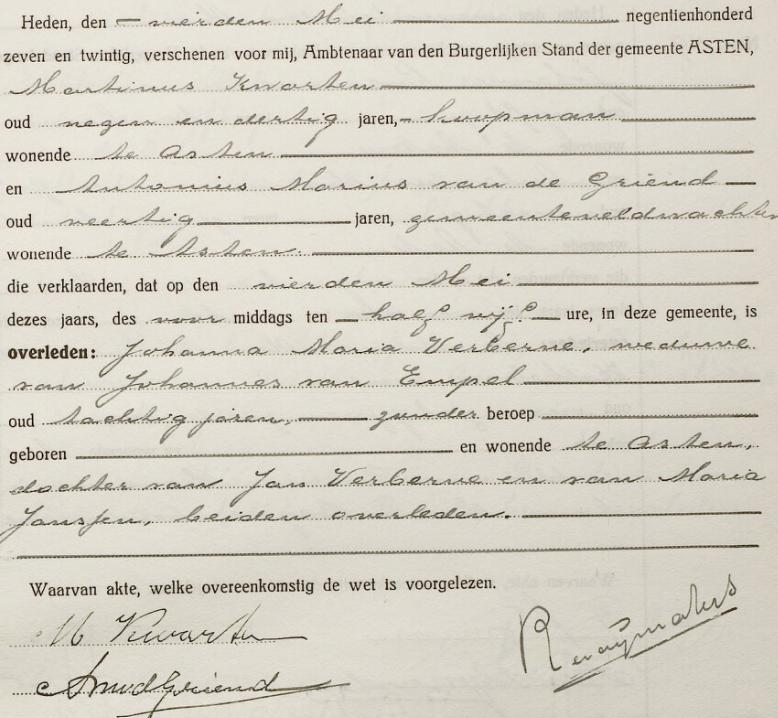 Heden, den vierden Mei negentienhonderd
zeven en twintig, verschenen voor mij, Ambtenaar van den Burgerlijken Stand der gemeente ASTEN,
Martinus Kwarten
oud negen en dertig jaren, koopman
wonende te Asten
en Antonius Marius van de Griend
oud veertig jaren, gemeenteveldwachter
wonende te Asten.
die verklaarden, dat op den vierden Mei
dezes jaars, des voor middags ten half vijf ure, in deze gemeente, is
overleden: Johanna Maria Verberne, weduwe
van Johannes van Empel
oud tachtig jaren, zonder beroep
geboren en wonende te Asten,
dochter van Jan Verberne en van Maria
Janssen, beiden overleden.
Waarvan akte, welke overeenkomstig de wet is voorgelezen.
M Kwarten
AMvdGriend